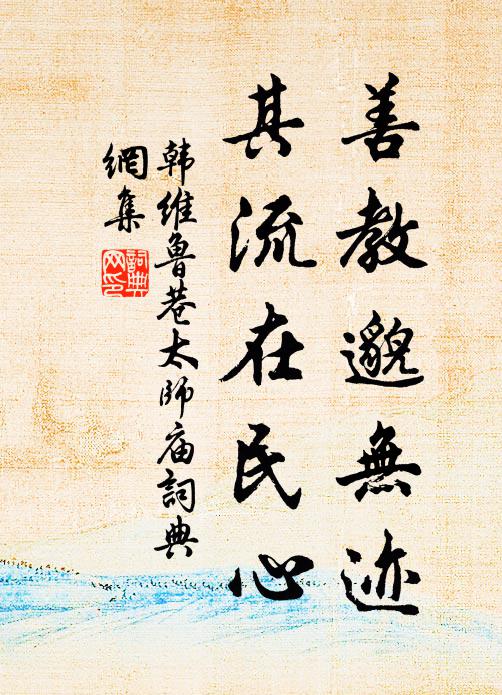 善教邈無迹
其流在民心
韩維魯巷太师庙詞典
網集
詞典
网印